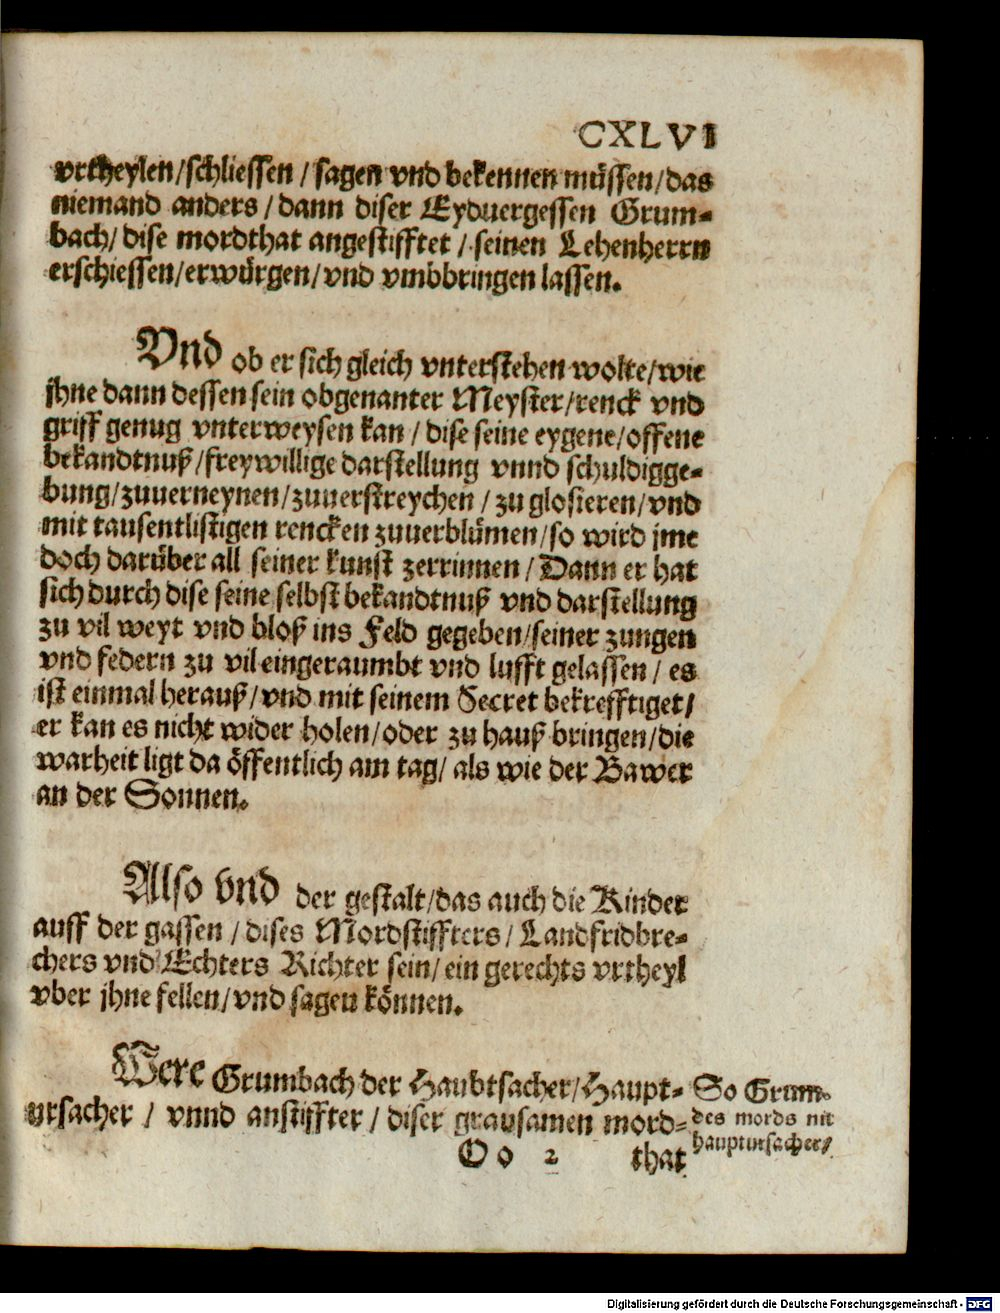 CXLVI
vrtheylen/schliessen/sagen vnd bekennen müssen/das
niemand anders/dann diser Eyduergessen Grum-
bach/dise mordthat angestifftet/seinen Lehenherrn
erschiessen/erwürgen/vnd vmbbringen lassen.
Vnd ob er sich gleich vnterstehen wolte/wie
jhne dann dessen sein obgenanter Meyster/renck vnd
griff genug vnterweysen kan/dise seine eygene/offene
bekandtnuß/freywillige darstellung vnnd schuldigge-
bung/zuuerneynen/zuuerstreychen/zu glosieren/vnd
mit tausentlistigen rencken zuuerblümen/so wird jme
doch darüber all seiner kunst zerrinnen/Dann er hat
sich durch dise seine selbst bekandtnuß vnd darstellung
zu vil weyt vnd bloß ins Feld gegeben/seiner zungen
vnd federn zu vil eingeraumbt vnd lufft gelassen/es
ist einmal herauß/vnd mit seinem Secret bekrefftiget/
er kan es nicht wider holen/oder zu hauß bringen/die
warheit ligt da öffentlich am tag/als wie der Bawer
an der Sonnen.
Also vnd der gestalt/das auch die Kinder
auff der gassen/dises Mordstiffters/Landfridbre-
chers vnd Echters Richter sein/ein gerechts vrtheyl
vber jhne fellen/vnd sagen können.
Were Grumbach der Haubtsacher/Haupt-
vrsacher/vnnd anstiffter/diser grausamen mord-
So Grum-
des mords nit
hauptursacher/
Oo 2 that
Digitalisierung gefördert durch die Deutsche Forschungsgemeinschaft - DFG